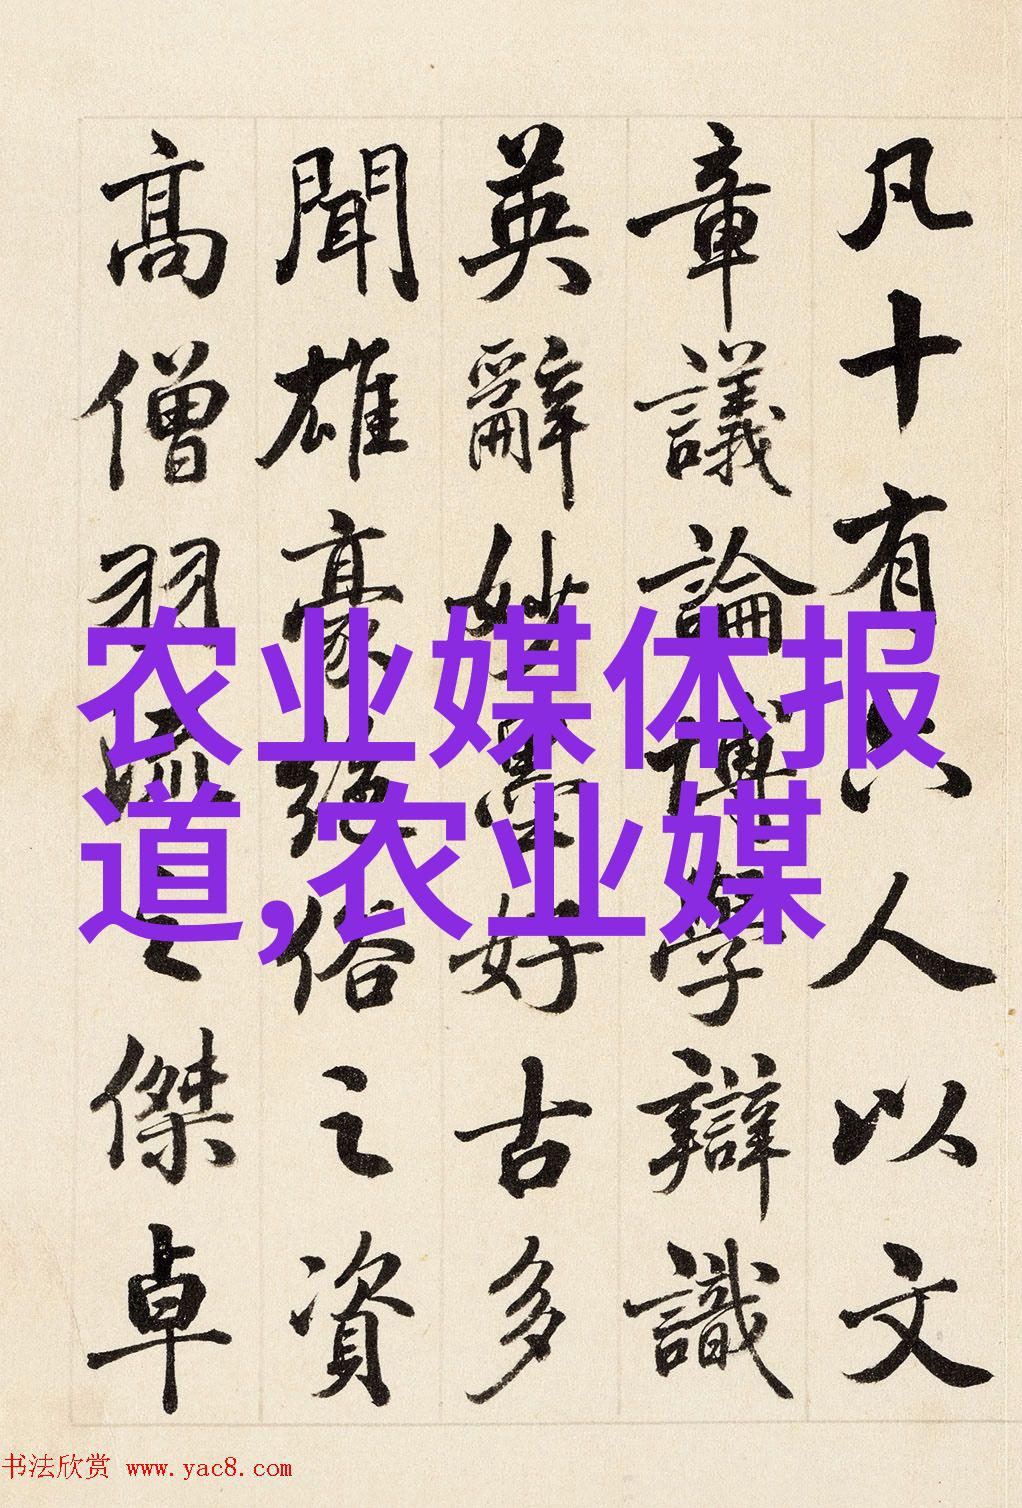 凡十有六人以文
章議論博學辯識
英辭妙墨好古多
聞雄豪絕俗之資
高僧羽流之傑卓
农业媒体报
道,农业媒
书法欣赏 www.yac8.com